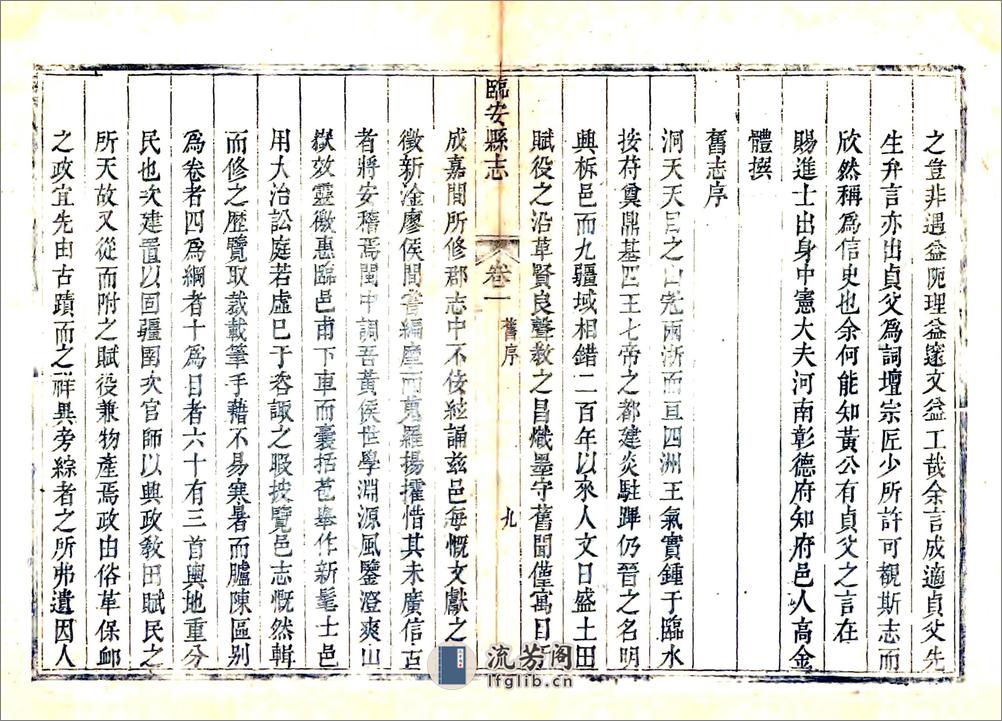 之豈非遇益阨理益邃文益工哉余言成適貞父先
生弁言亦出貞父為詞壇宗匠少所許可觀斯志而
欣然稱為信史也余何能知黃公有貞父之言在
賜進士出身中憲大夫河南彰德府知府邑人高金
體撰
舊志序
洞天天目之山冠兩浙而亘四洲王氣實鍾于臨水
按苻奠鼎基四王七帝之都建炎駐蹕仍晉之名明
興柝邑而九疆域相錯二百年以來人文日盛土田
賦役之沿革賢良聲教之昌熾墨守舊聞僅寓目于
臨安縣志
卷一
舊序
九
成嘉間所修郡志中不佞絃誦茲邑每慨文獻之
徵新淦廖侯間嘗編摩而蒐羅揚㩁惜其未廣信古
者將安稽焉閩中調吾黃侯世學淵源風鑒澄爽山
嶽效靈徽惠臨邑甫下車而囊括苞舉作新髦士邑
用大治訟庭若虛已于咨諏之暇按覽邑志慨然輯
而修之歷覽取裁載筆手藉不易寒暑而臚陳區別
為卷者四為綱者十為目者六十有三首輿地重分
民也次建置以固疆圉次官師以興政教田賦民之
所天故又從而附之賦役兼物產焉政由俗革保邮
之政宜先由古蹟而之祥異旁綜者之所弗遺因人
流芳阁
lfglib.cn